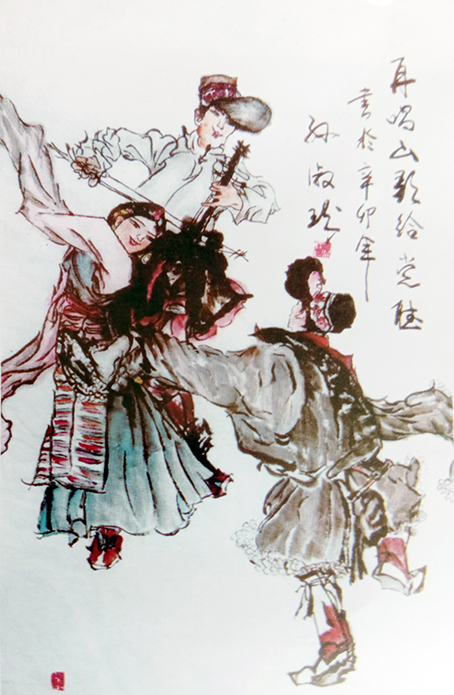 再唱山歌给党听
於辛卯年
孙淑